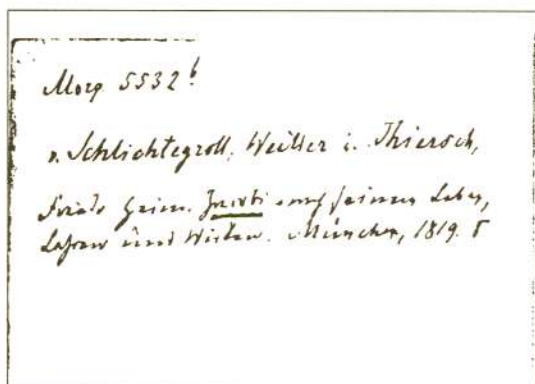 Morg 5532 b
v. Schlichtegroll, Weiller u. Thiersch,
Friedr. Heinr. Jacobi nach seinem Leben,
Lehren und Wirken. München, 1819. 8